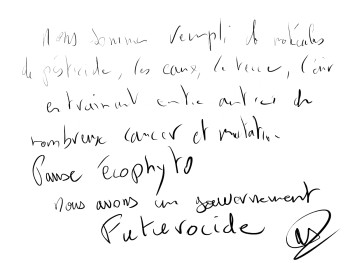 Nous sommes rempli de molécules
de pesticide, les eaux, la terre, l'air
entrainant entre autres de
nombreux cancer et mutation
Pause Écophyto
nous avons un gouvernement
Futurocide